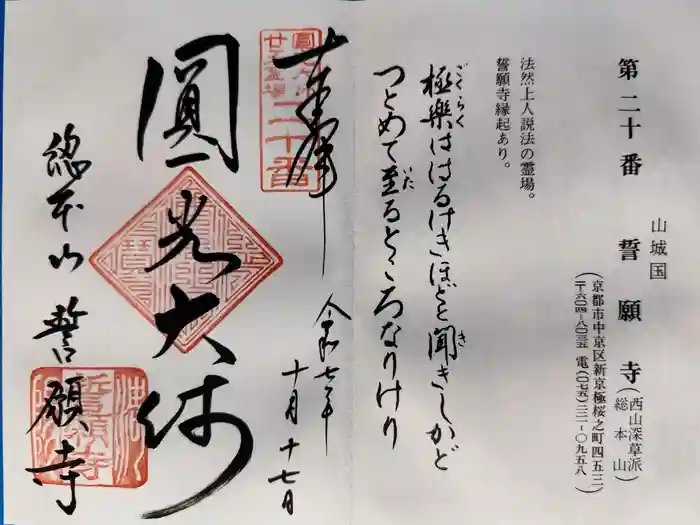 第二十番 誓願寺(西山深草派 総本山)
山城国
(京都市中京区新京極桜之町四五三
〒六〇四-八〇三五 電(〇七五)二二一-〇九五八)
法然上人説法の霊場。
誓願寺縁起あり。
極樂ははるけきほどと聞きしかど
ごくらく
き
つとめて至るところなりけり
いた
奉拝
令和七年
十月十七日
二十番
圓光大師
総本山誓願寺
誓願寺